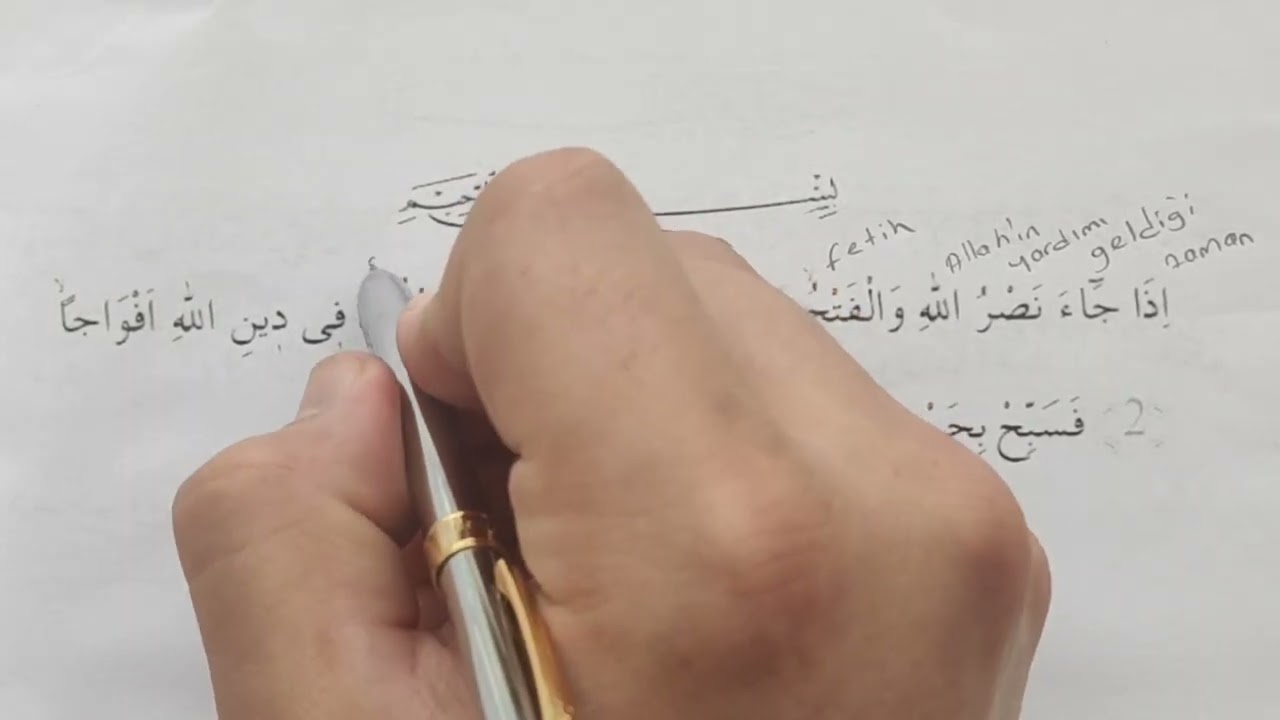 fetih Allah'ın yardımı geldiği zaman
اِذَا جَٓاءَ نَصْرُ اللّٰهِ وَالْفَتْحُ فٖي دٖينِ اللّٰهِ اَفْوَاجاًۙ
2 فَسَبِّحْ